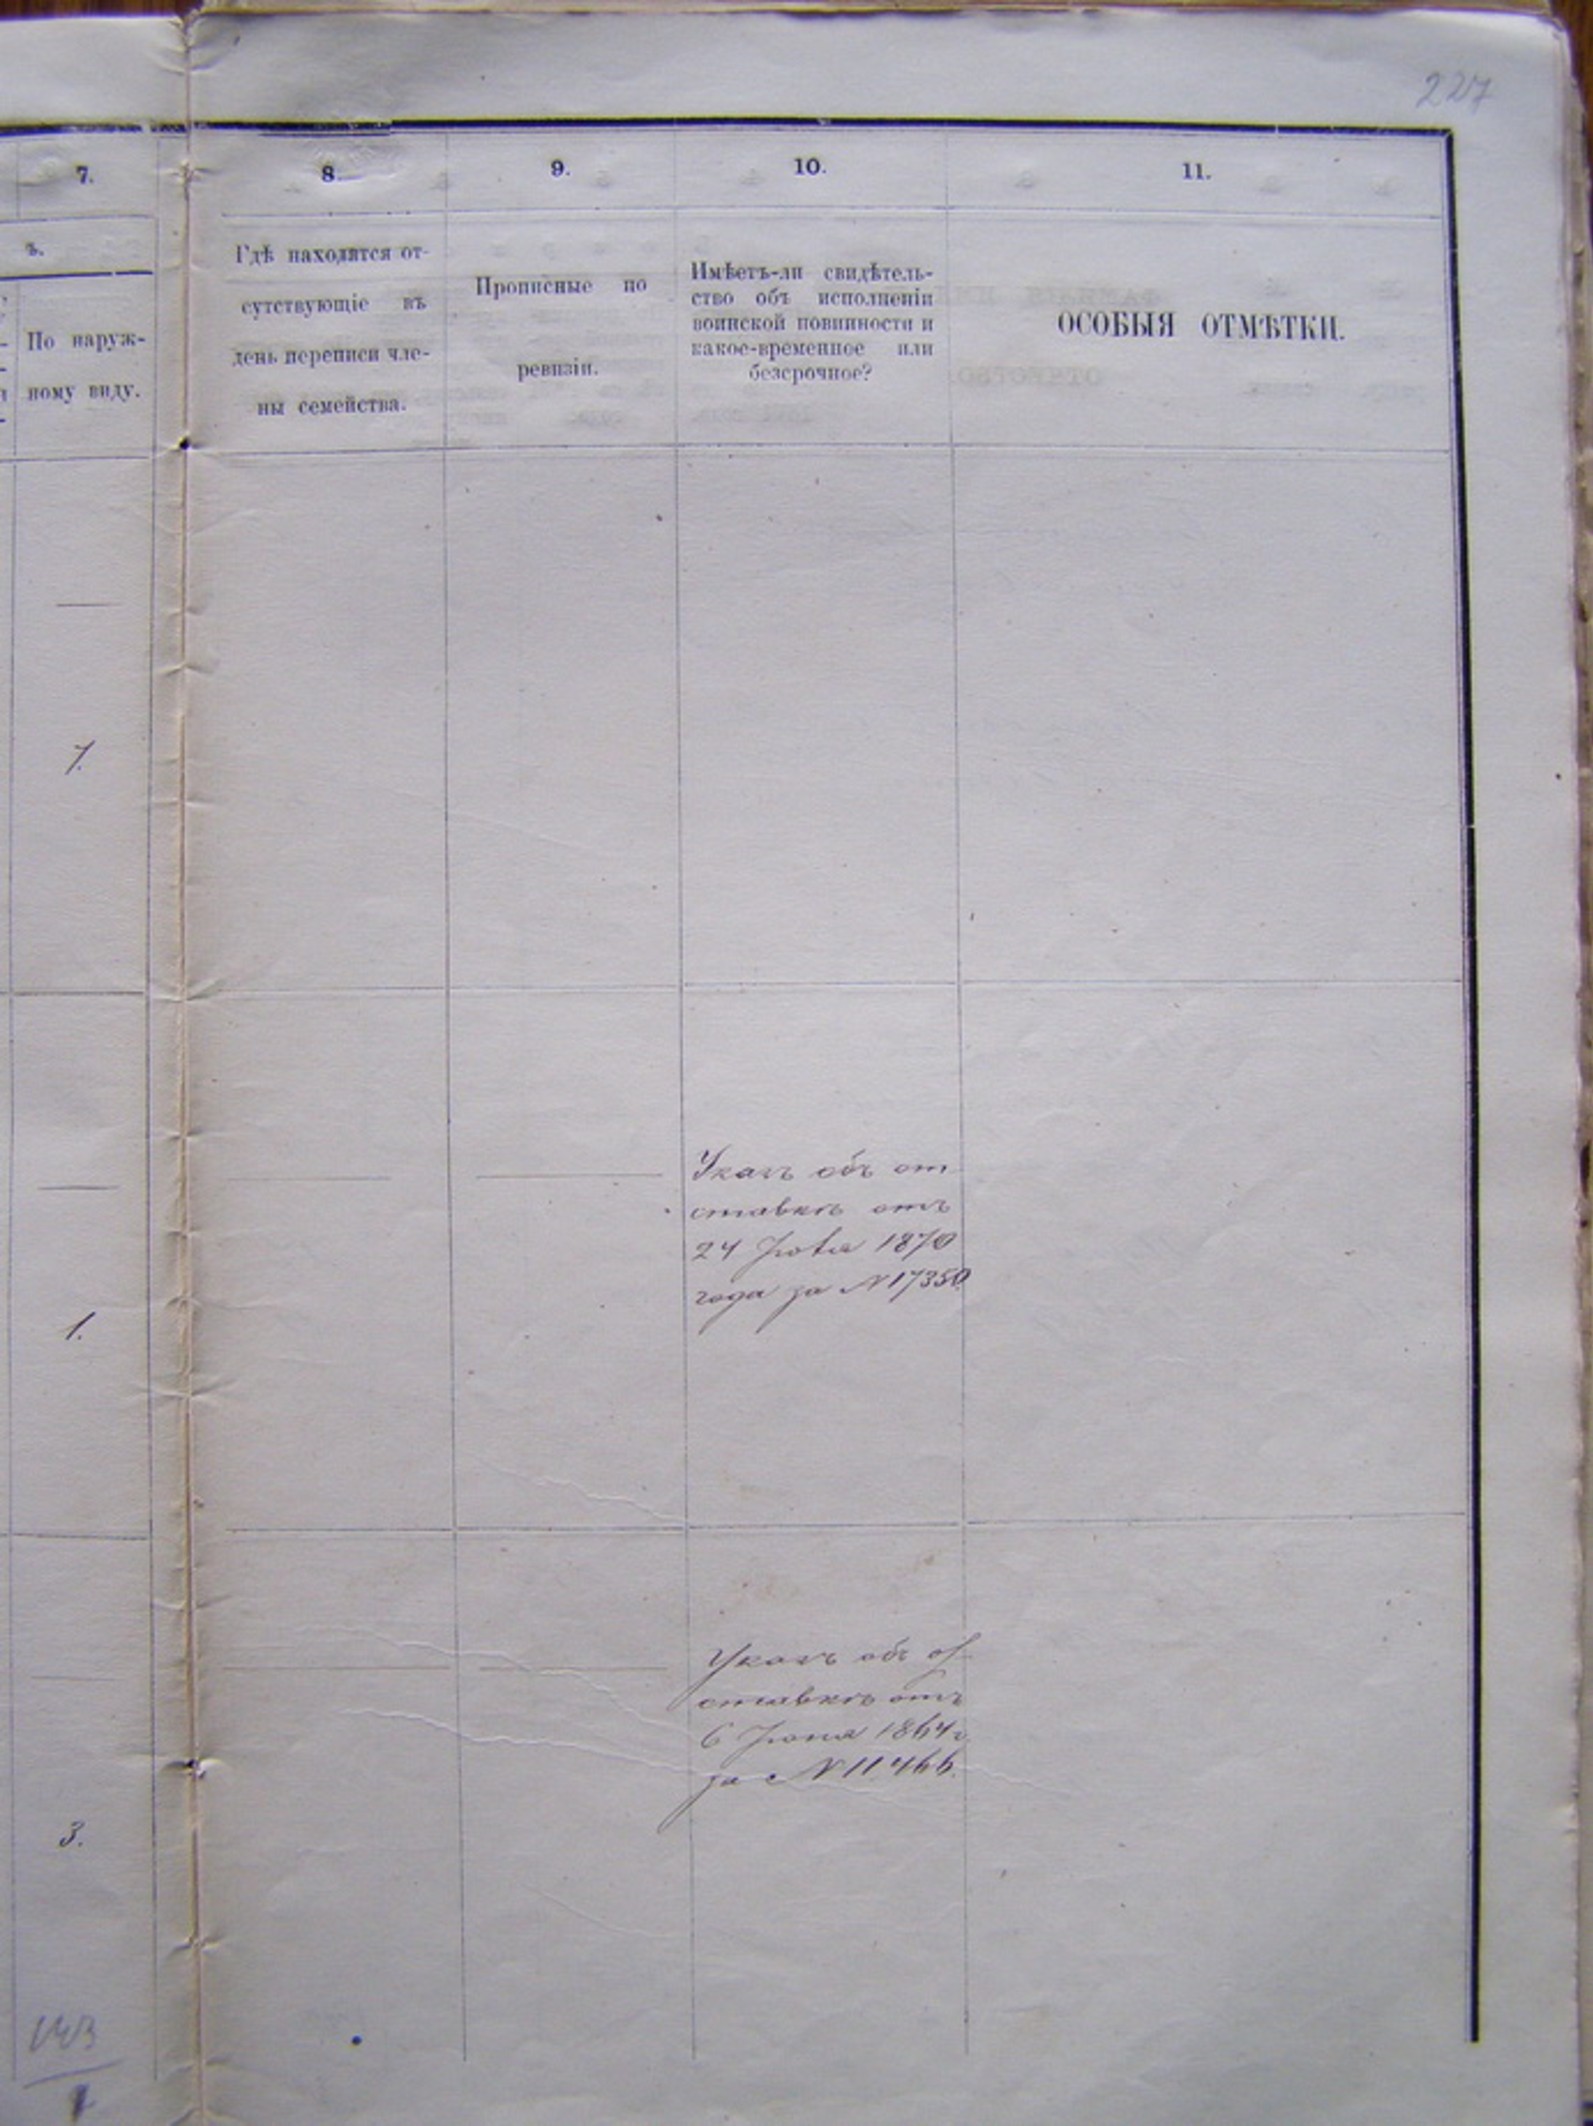 227
7.
8.
9.
10.
11.
ъ.
По наруж-
ному виду.
Гдѣ находятся от-
сутствующіе въ
день переписи чле-
ны семейства.
Прописные по
ревизіи.
Имѣетъ-ли свидѣтель-
ство объ исполненіи
воинской повинности и
какое-временное или
безсрочное?
ОСОБЫЯ ОТМѢТКИ.
7.
1.
Указъ объ от
ставкѣ отъ
24 1870
года за № 17350.
3.
Указъ объ от-
ставкѣ отъ
6 Іюня 1864 г.
за № 11466.